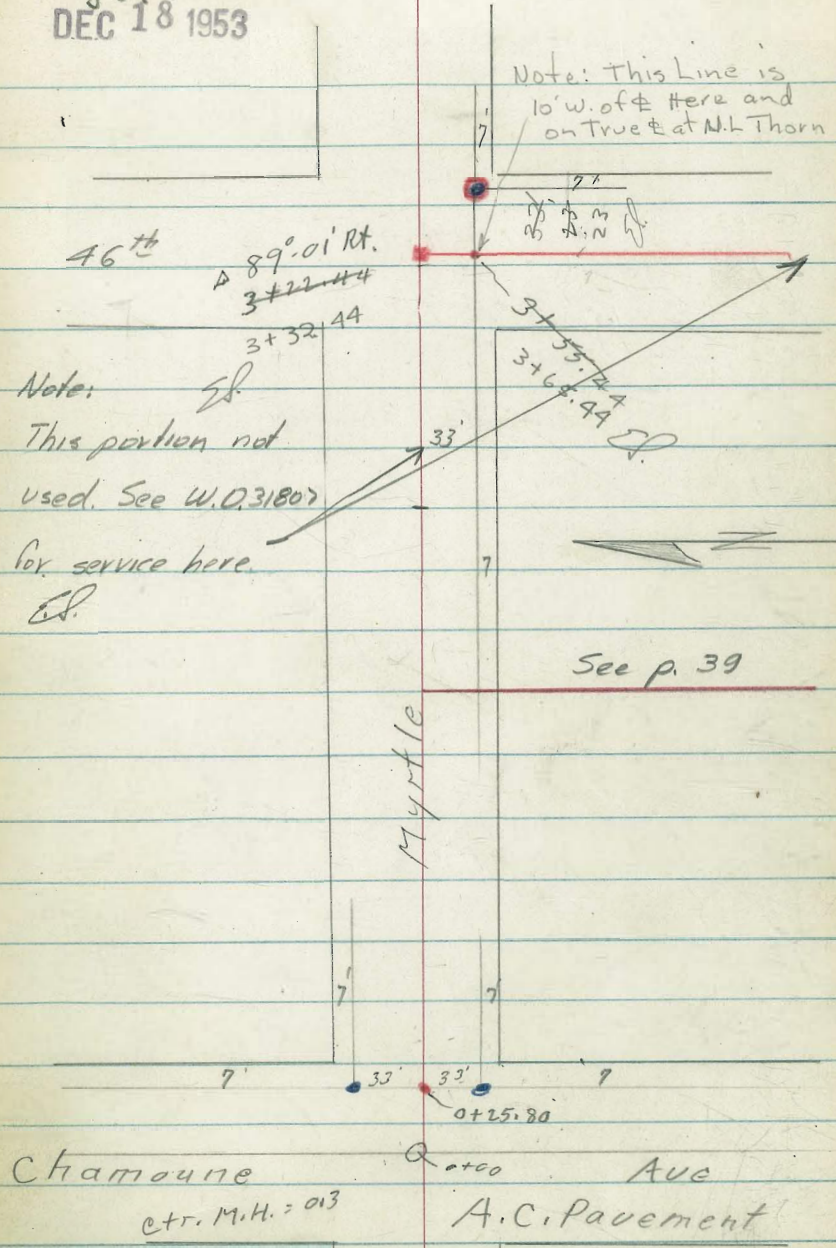 DEC 18 1953
Note: This Line is
10' W. of ℄ Here and
on True ℄ at N.L Thorn
7'
7'
33'
23
23
46th
Δ 89°-01' Rt.
3+22.44
3+32.44
3+55.44
3+65.44
Note:
This portion not
used. See W.O.31807
for service here.
33'
7
See p. 39
Myrtle
7'
7'
7'
33'
33'
7
0+25.80
0+00
Chamoune
Ave
ctr. M.H. = 0.3
A.C. Pavement